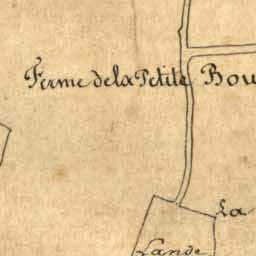 Ferme de la Petite Bou
La
Lande